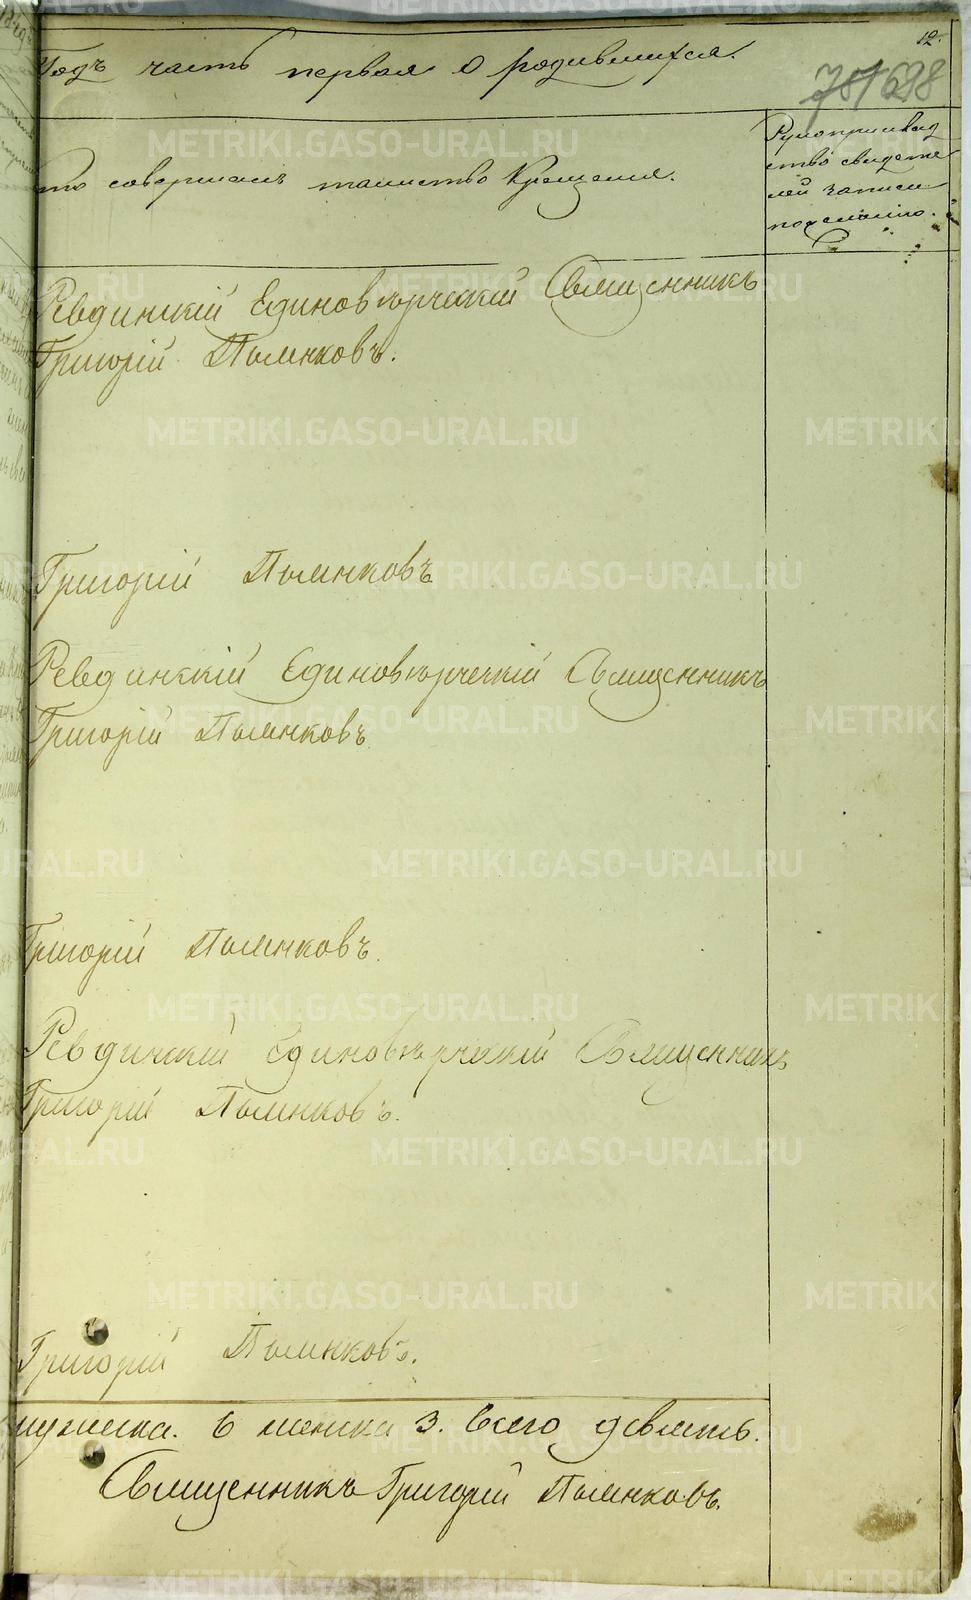 12.
Годъ часть первая о родившихся.
698
то совершалъ таинство Крещения.
Рукоприклад
ство свидете
лей записи
по желанию.
Ревдинскій Единовѣрческій Священникъ
Григорій Пьянковъ.
Григорій Пьянковъ
Ревдинскій Единовѣрческій Священникъ
Григорій Пьянковъ
Григорій Пьянковъ.
Ревдинскій Единовѣрческій Священникъ
Григорій Пьянковъ.
Григорій Пьянковъ.
мужеска. 6 женска 3. всего девять.
Священникъ Григорій Пьянковъ.
METRIKI.GASO-URAL.RU